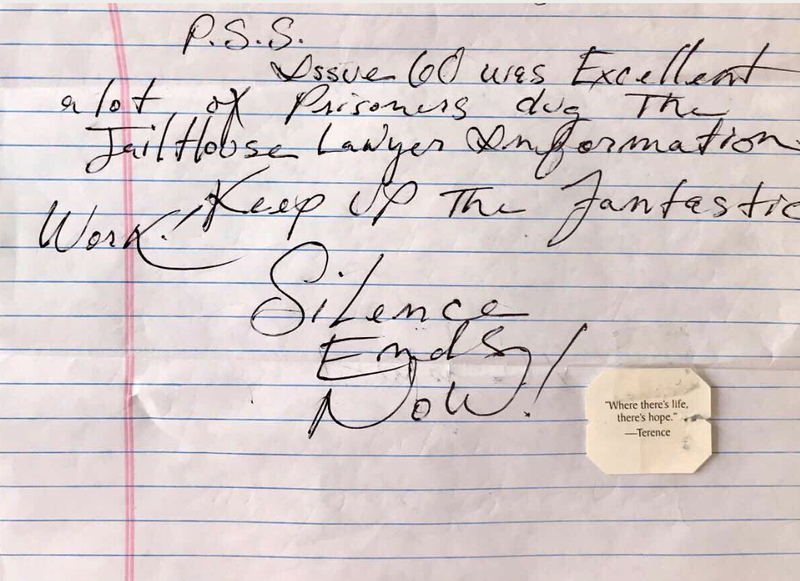 P.S.S.
Issue 60 was Excellent
a lot of Prisoners dug The
JailHouse Lawyer Information
Keep UP The Fantastic
Work!
Silence
Ends
Now!
"Where there's life,
there's hope."
—Terence